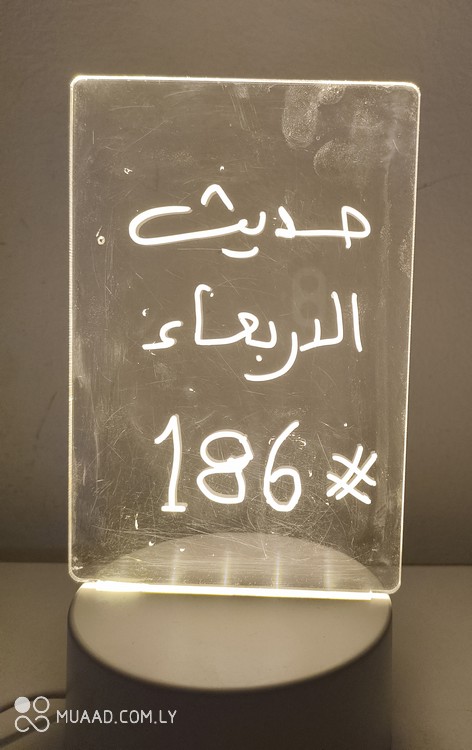 حديث
الاربعاء
#186
MUAAD.COM.LY